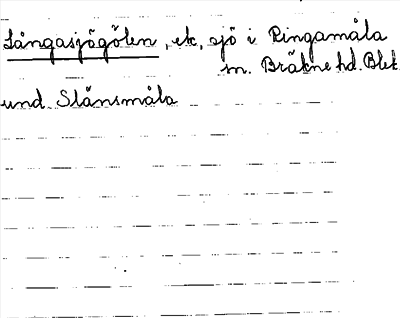 Långasjögölen, ek, sjö i Ringamåla
sn. Bräkne hd. Blek.
und. Slånsmåla